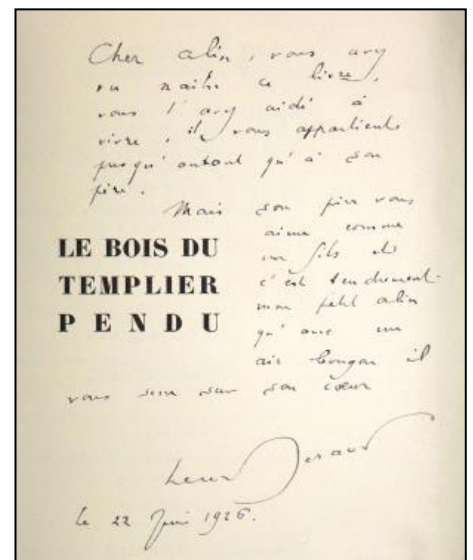 Cher Alin, vous avez
vu naître ce livre,
vous l'avez aidé à
vivre, il vous appartient
presqu'autant qu'à son
père.
Mais son père vous
aime comme
un fils et
c'est tendrement
mon petit Alin
qu'avec un
air bougon il
vous serre sur son cœur
LE BOIS DU
TEMPLIER
PENDU
Henri Béraud
le 22 Juin 1926.